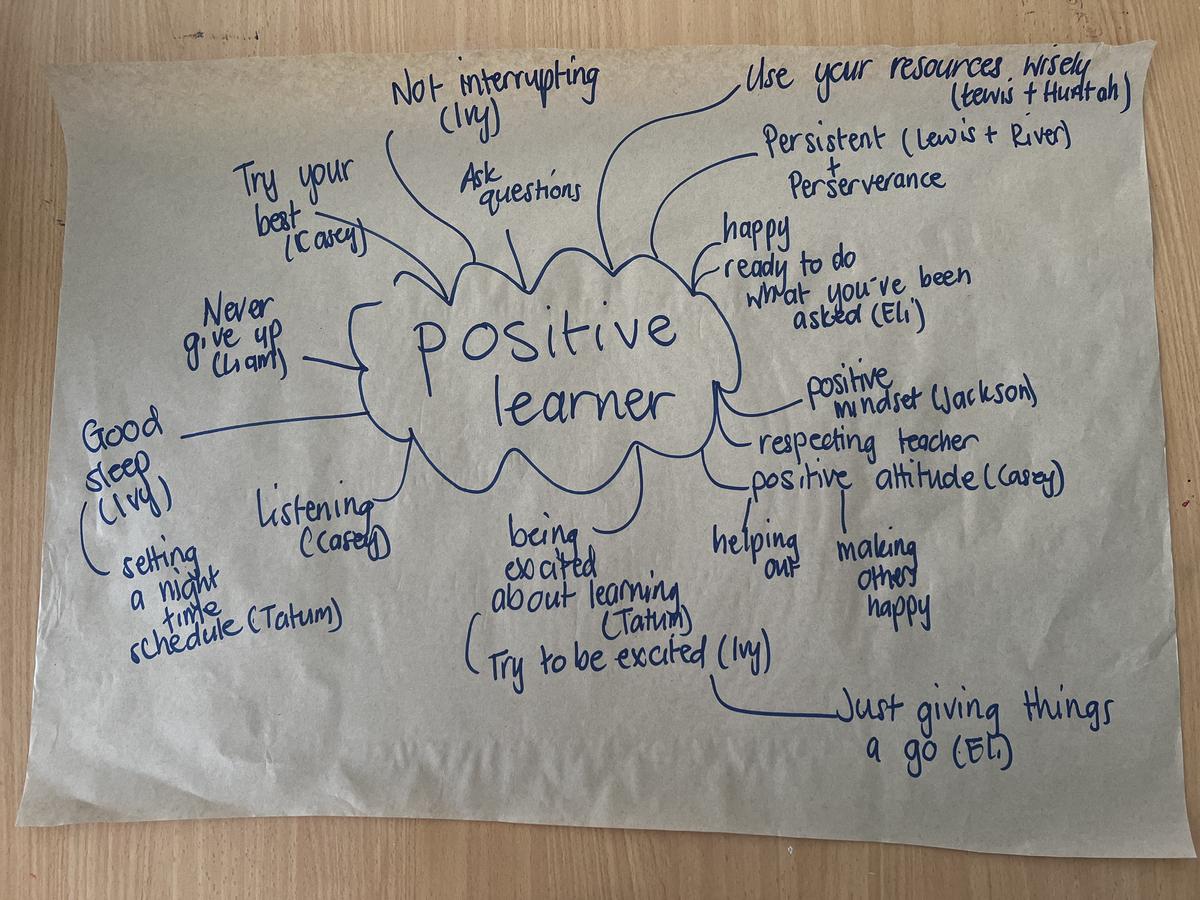 Not interrupting
(Ivy)
Use your resources wisely
(Lewis + Huntah)
Try your
best
(Casey)
Ask
questions
Persistent (Lewis + River)
+
Perserverance
happy
ready to do
what you've been
asked (Eli)
Never
give up
(Liam)
positive
learner
positive
mindset (Jackson)
respecting teacher
positive attitude (Casey)
helping
out
making
others
happy
Good
sleep
(Ivy)
setting
a night
time
schedule (Tatum)
Listening
(Casey)
being
excited
about learning
(Tatum)
Try to be excited (Ivy)
Just giving things
a go (Eli)